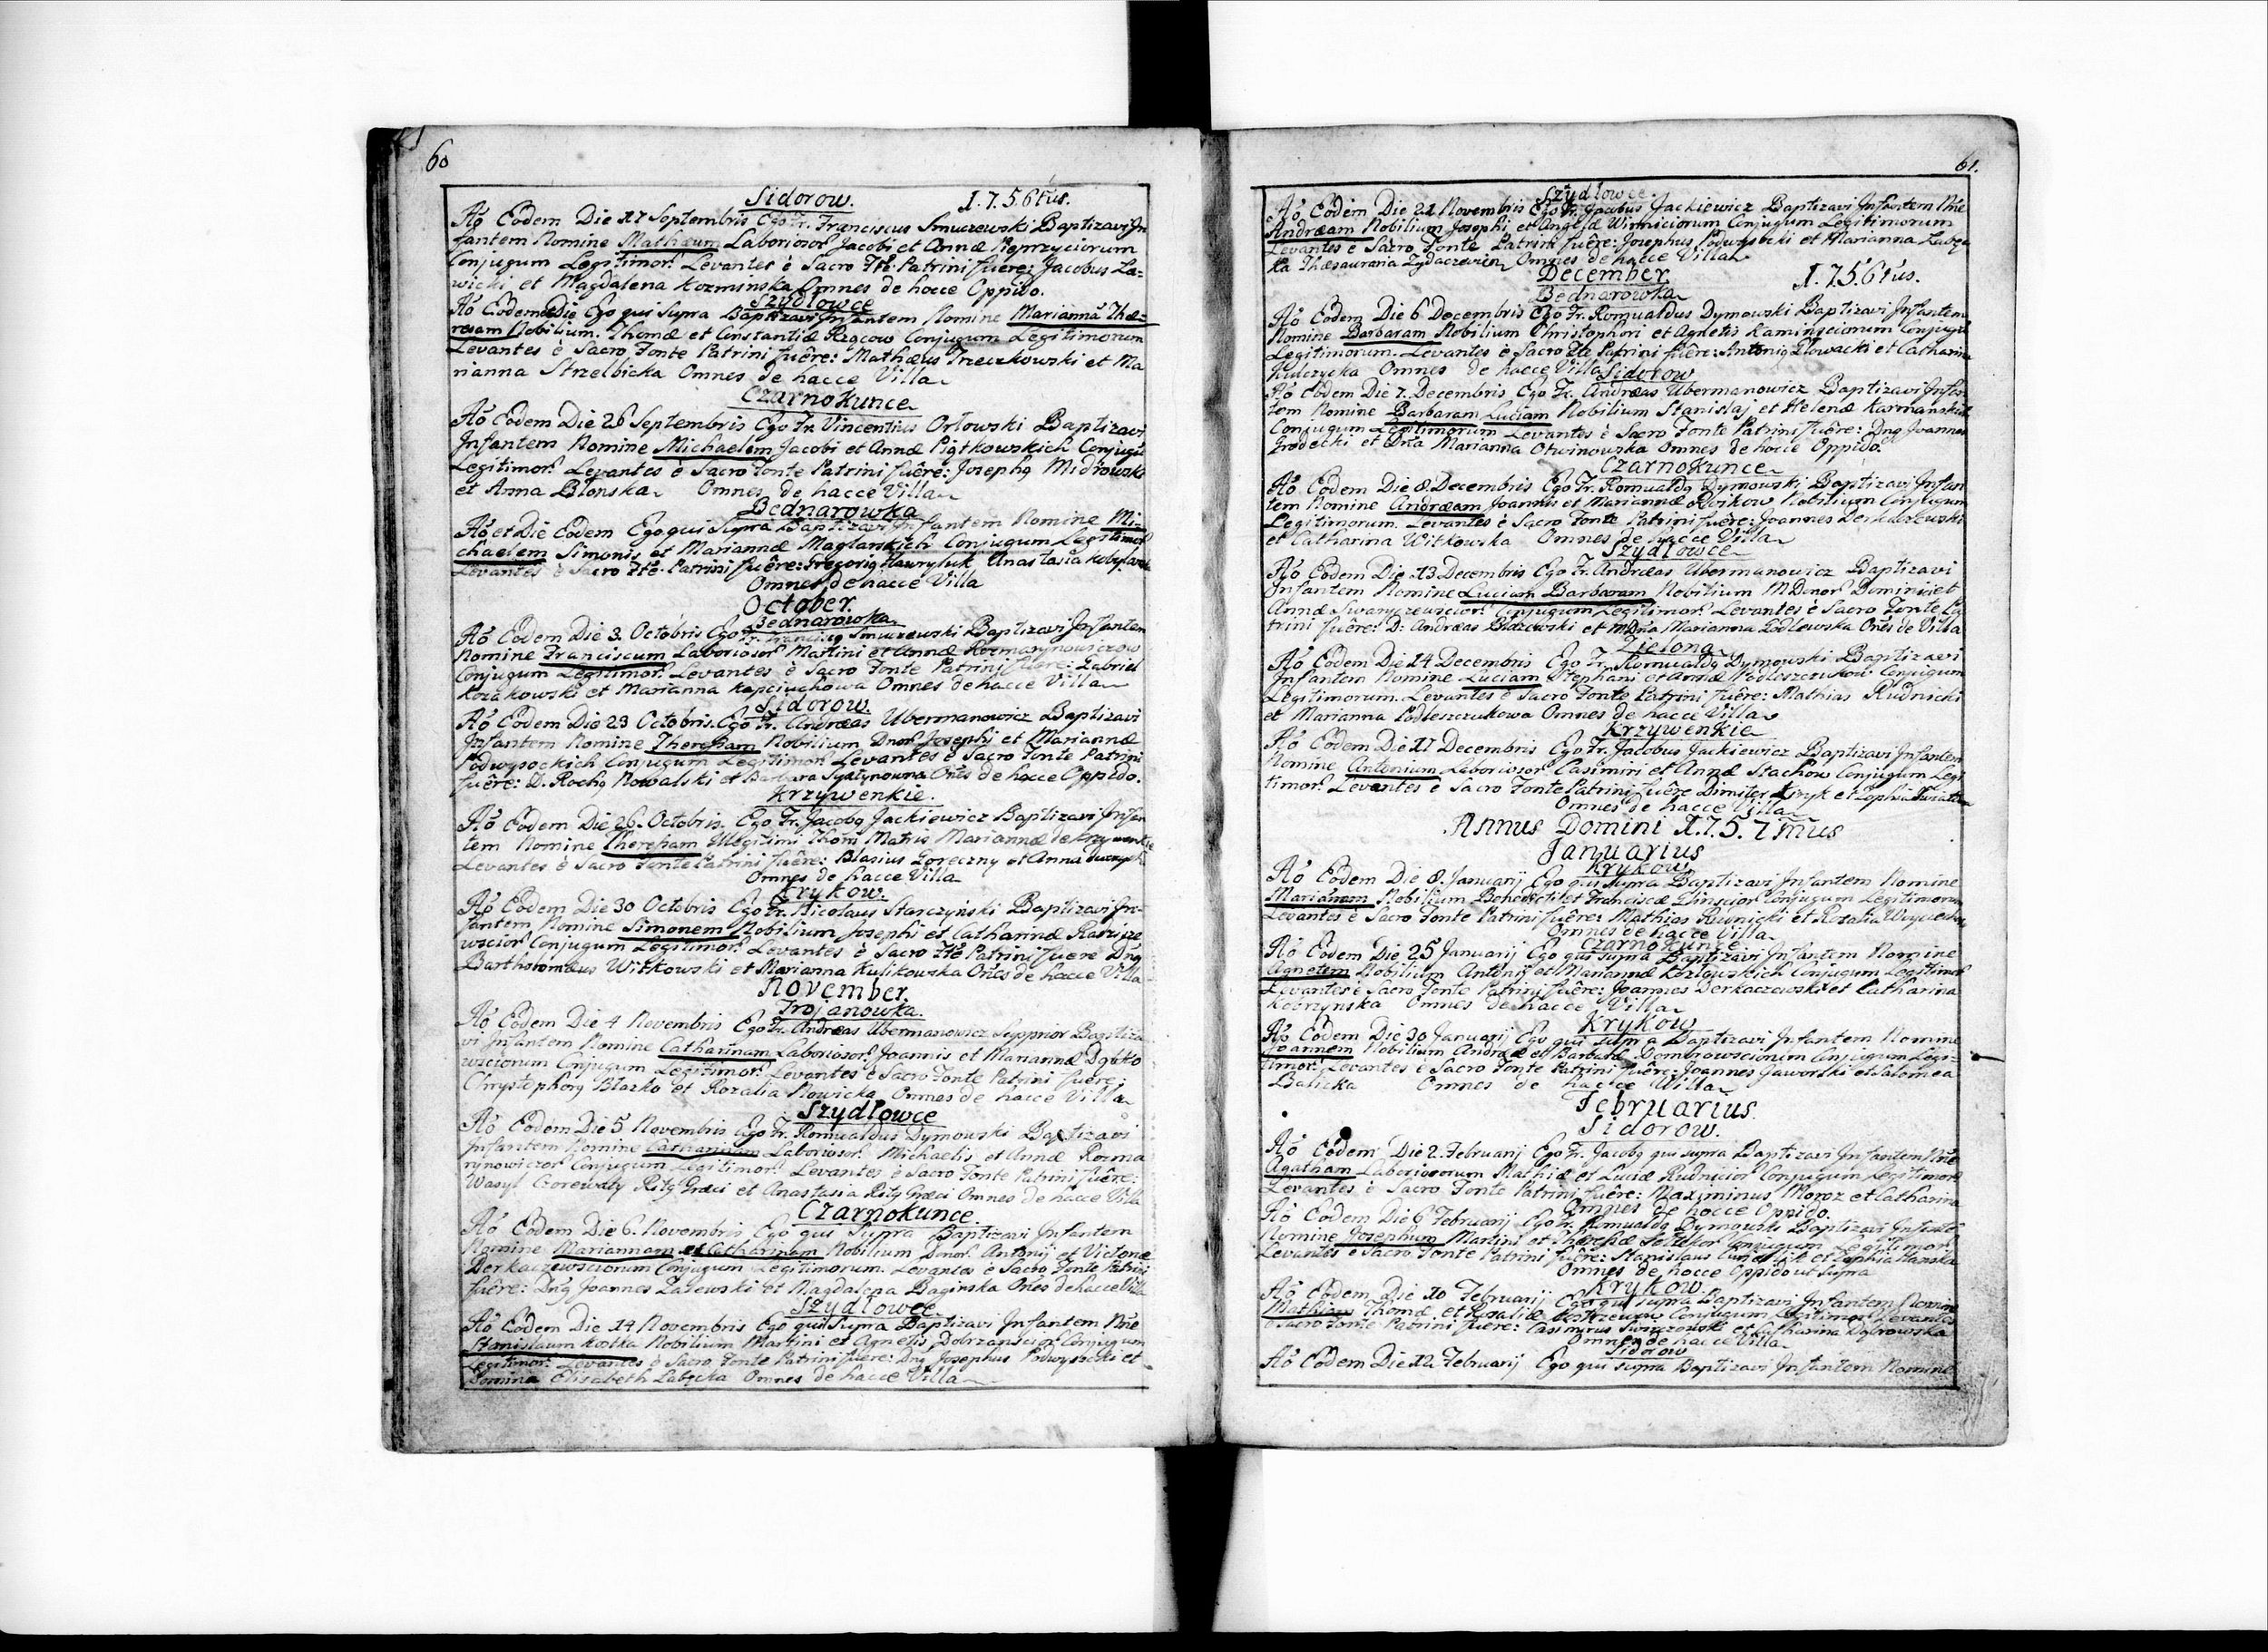 60
Sidorow. 1.7.5.6tus.
Aō Eodem Die 17 Septembris Ego Fr. Franciscus Smuczewski Baptizavi In
fantem Nomine Mathæum Laboriosor̄ Jacobi et Annæ Nieprzyciorum
Conjugum Legitimor̄. Levantes è Sacro Fte Patrini fuêre: Jacobus La=
wicki et Magdalena Kozminska Omnes de hocce Oppido.
Szydlowce
Aō Eodem Die Ego qui Supra Baptizavi Infantem Nomine Marianna The=
resam Nobilium Thomæ et Constantiæ Conjugum Legitimorum
Levantes è Sacro Fonte Patrini fuêre: Mathæus Treczkowski et Ma
rianna Strzelbicka Omnes de hacce Villa
Czarnokunce
Aō Eodem Die 26 Septembris Ego Fr. Vincentius Orlowski Baptizavi
Infantem Nomine Michaelem Jacobi et Annæ Piątkowskich Conjugū
Legitimor̄ Levantes è Sacro Fonte Patrini fuêre: Josephq
et Anna Blonska Omnes de hacce Villa
Bednarowka
Aō et Die Eodem Ego qui Supra Baptizavi Infantem Nomine Mi=
chaelem Simonis et Mariannæ Maglanskich Conjugum Legitimor̄
Levantes è Sacro Fte. Patrini fuêre: Gregoriq Hawryluk Anastasia
Omnes de hacce Villa
October.
Bednarowka
Aō Eodem Die 3. Octobris Ego Fr. Franciscq Smuczewski Baptizavi Infantem
Nomine Franciscum Laboriosor̄ Martini et Annæ Rozmarynowiczow
Conjugum Legitimor̄. Levantes è Sacro Fonte Patrini fuêre: Gabriel
Kozakowski et Marianna Kapciuchowa Omnes de hacce Villa
Sidorow.
Aō Eodem Die 23 Octobris. Ego Fr. Andræas Ubermanowicz Baptizavi
Infantem Nomine Theresiam Nobilium Dnor̄ Josephi et Mariannæ
Podwysockich Conjugum Legitimor̄ Levantes è Sacro Fonte Patrini
fuêre: D. Rochq Nowalski et Barbara Om̄es de hocce Oppido.
Krzywenkie.
Aō Eodem Die 26. Octobris. Ego Fr. Jacobq Jackiewicz Baptizavi Infan
tem Nomine Theresiam Illegitimi Thori Matris Mariannæ de Krzywenkie
Levantes è Sacro Fonte Patrini fuêre: Blasius Goreczny et Anna
Omnes de hacce Villa
Krykow.
Aō Eodem Die 30 Octobris Ego Fr. Nicolaus Starczyński Baptizavi In=
fantem Nomine Simonem Nobilium Josephi et Catharinæ
Conjugum Legitimor̄. Levantes è Sacro Fte Patrini fuere Dnq
Bartholomæus Witkowski et Marianna Kulikowska Om̄es de hacce Villa
November.
Trojanowka.
Aō Eodem Die 4 Novembris Ego Fr. Andræas Ubermanowicz Supprior Baptiza
vi Infantem Nomine Catharinam Laboriosor̄ Joannis et Mariannæ
wiciorum Conjugum Legitimor̄. Levantes è Sacro Fonte Patrini fuêre:
Chrystophorq Blazko et Rozalia Nowicka Omnes de hacce Villa
Szydlowce
Aō Eodem Die 5 Novembris Ego Fr. Romualdus Dymowski Baptizavi
Infantem Nomine Catharinam Laboriosor̄ Michaelis et Annæ Rozma
rynowiczor̄ Conjugum Legitimor̄. Levantes è Sacro Fonte Patrini fuêre:
Wasyl Ritq Græci et Anastasia Ritq Græci Omnes de hacce Villa
Czarnokunce.
Aō Eodem Die 6. Novembris Ego qui Supra Baptizavi Infantem
Nomine Mariannam et Catharinam Nobilium Dnor̄ Antonij et Victoriæ
Derkaczewsciorum Conjugum Legitimorum. Levantes è Sacro Fonte Patrini
fuêre: Dnq Joannes Zalewski et Magdalena Baginska Om̄es de hacce Villa
Szydlowce
Aō Eodem Die 14 Novembris Ego qui Supra Baptizavi Infantem Nn̄e
Stanislaum Kostka Nobilium Martini et Agnetis Dobrzanscior̄ Conjugum
Legitimor̄. Levantes è Sacro Fonte Patrini fuêre: Dnq Josephus Podwysocki et
Domina Elisabeth Labęcka Omnes de hacce Villa
61.
Szydlowce.
Aō Eodem Die 21 Novembris Ego Fr. Jacobus Jackiewicz Baptizavi Infantem Nn̄e
Andræam Nobilium Josephi et Angelæ Winniciorum Conjugum Legitimorum
Levantes è Sacro Fonte Patrini fuêre: Josephus Podwysocki et Marianna
ka Thæsauraria Omnes de hacce Villa
December. 1.7.5.6tus.
Bednarowka
Aō Eodem Die 6 Decembris Ego Fr. Romualdus Dymowski Baptizavi Infantem
Nomine Barbaram Nobilium Christophori et Agnetis Conjugū
Legitimorum. Levantes è Sacro Fte Patrini fuêre: Antoniq Slowacki et Catharina
Kulczycka Omnes de hacce Villa
Sidorow
Aō Eodem Die 7. Decembris Ego Fr. Andræas Ubermanowicz Baptizavi Infan
tem Nomine Barbaram Luciam Nobilium Stanislaj et Helenæ Karmanskich
Conjugum Legitimorum Levantes è Sacro Fonte Patrini fuêre: Dnq Joannes
Grodecki et Dn̄a Marianna Otwinowska Omnes de hocce Oppido.
Czarnokunce
Aō Eodem Die 8. Decembris Ego Fr. Romualdq Dymowski Baptizavi Infan
tem Nomine Andræam Joannis et Mariannæ Nobilium Conjugum
Legitimorum. Levantes è Sacro Fonte Patrini fuêre: Joannes Derkaczewski
et Catharina Witkowska Omnes de hacce Villa
Szydlowce
Aō Eodem Die 13 Decembris Ego Fr. Andræas Ubermanowicz Baptizavi
Infantem Nomine Luciam Barbaram Nobilium MDnor̄ Dominici et
Annæ Conjugum Legitimor̄. Levantes è Sacro Fonte Pa
trini fuêre: D. Andræas et MDn̄a Marianna Podlewska Om̄es de Villa
Zielona
Aō Eodem Die 14 Decembris Ego Fr. Romualdq Dymowski Baptizavi
Infantem Nomine Luciam Stephani et Annæ Podleszczukow Conjugum
Legitimorum. Levantes è Sacro Fonte Patrini fuêre: Mathias Rudnicki
et Marianna Podleszczukowa Omnes de hacce Villa
Krzywenkie
Aō Eodem Die 17 Decembris Ego Fr. Jacobus Jackiewicz Baptizavi Infantem
Nomine Antonium Laboriosor̄ Casimiri et Annæ Stachow Conjugum Legi
timor̄. Levantes è Sacro Fonte Patrini fuêre Dimiter et Zophia
Omnes de hacce Villa
Annus Domini 1.7.5.7mus
Januarius
Krykow
Aō Eodem Die 8. Januarij Ego qui Supra Baptizavi Infantem Nomine
Mariānam Nobilium Benedicti et Franciscæ Conjugum Legitimorum
Levantes è Sacro Fonte Patrini fuêre: Mathias et Rozalia
Omnes de hacce Villa
Czarnokunce
Aō Eodem Die 25 Januarij Ego qui supra Baptizavi Infantem Nomine
Agnetem Nobilium Antonij et Mariannæ Kozlowskich Conjugum Legitimor̄
Levantes è Sacro Fonte Patrini fuêre: Joannes Derkaczewski et Catharina
Kobrzynska Omnes de hacce Villa
Krykow
Aō Eodem Die 30 Januarij Ego qui supra Baptizavi Infantem Nomine
Joannem Nobilium Andrææ et Barbaræ Dombrowsciorum Conjugum Legi=
timor̄. Levantes è Sacro Fonte Patrini fuêre: Joannes Jaworski et Salomea
Balicka Omnes de hacce Villa
Februarius.
Sidorow.
Aō Eodem Die 2. Februarij Ego Fr. Jacobq qui supra Baptizavi Infantem Nn̄e
Agatham Laboriosorum Mathiæ et Luciæ Rudnicior̄ Conjugum Legitimor̄
Levantes è Sacro Fonte Patrini fuêre: Maximinus Moroz et Catharina
Omnes de hocce Oppido.
Aō Eodem Die 6 Februarij Ego Fr. Romualdq Dymowski Baptizavi Infante
Nomine Josephum Martini et Theresiæ Conjugum Legitimor̄
Levantes è Sacro Fonte Patrini fuêre: Stanislaus et Zophia
Omnes de hocce Oppido ut supra
Krykow.
Aō Eodem Die 10 Februarij Ego qui supra Baptizavi Infantem Nomine
Mathiam Thomæ et Rosaliæ Conjugum Legitimor̄ Levantes
è Sacro Fonte Patrini fuere: Casimirus et Catharina Dąbrowska
Omnes de hacce Villa
Sidorow
Aō Eodem Die 12 Februarij Ego qui supra Baptizavi Infantem Nomine